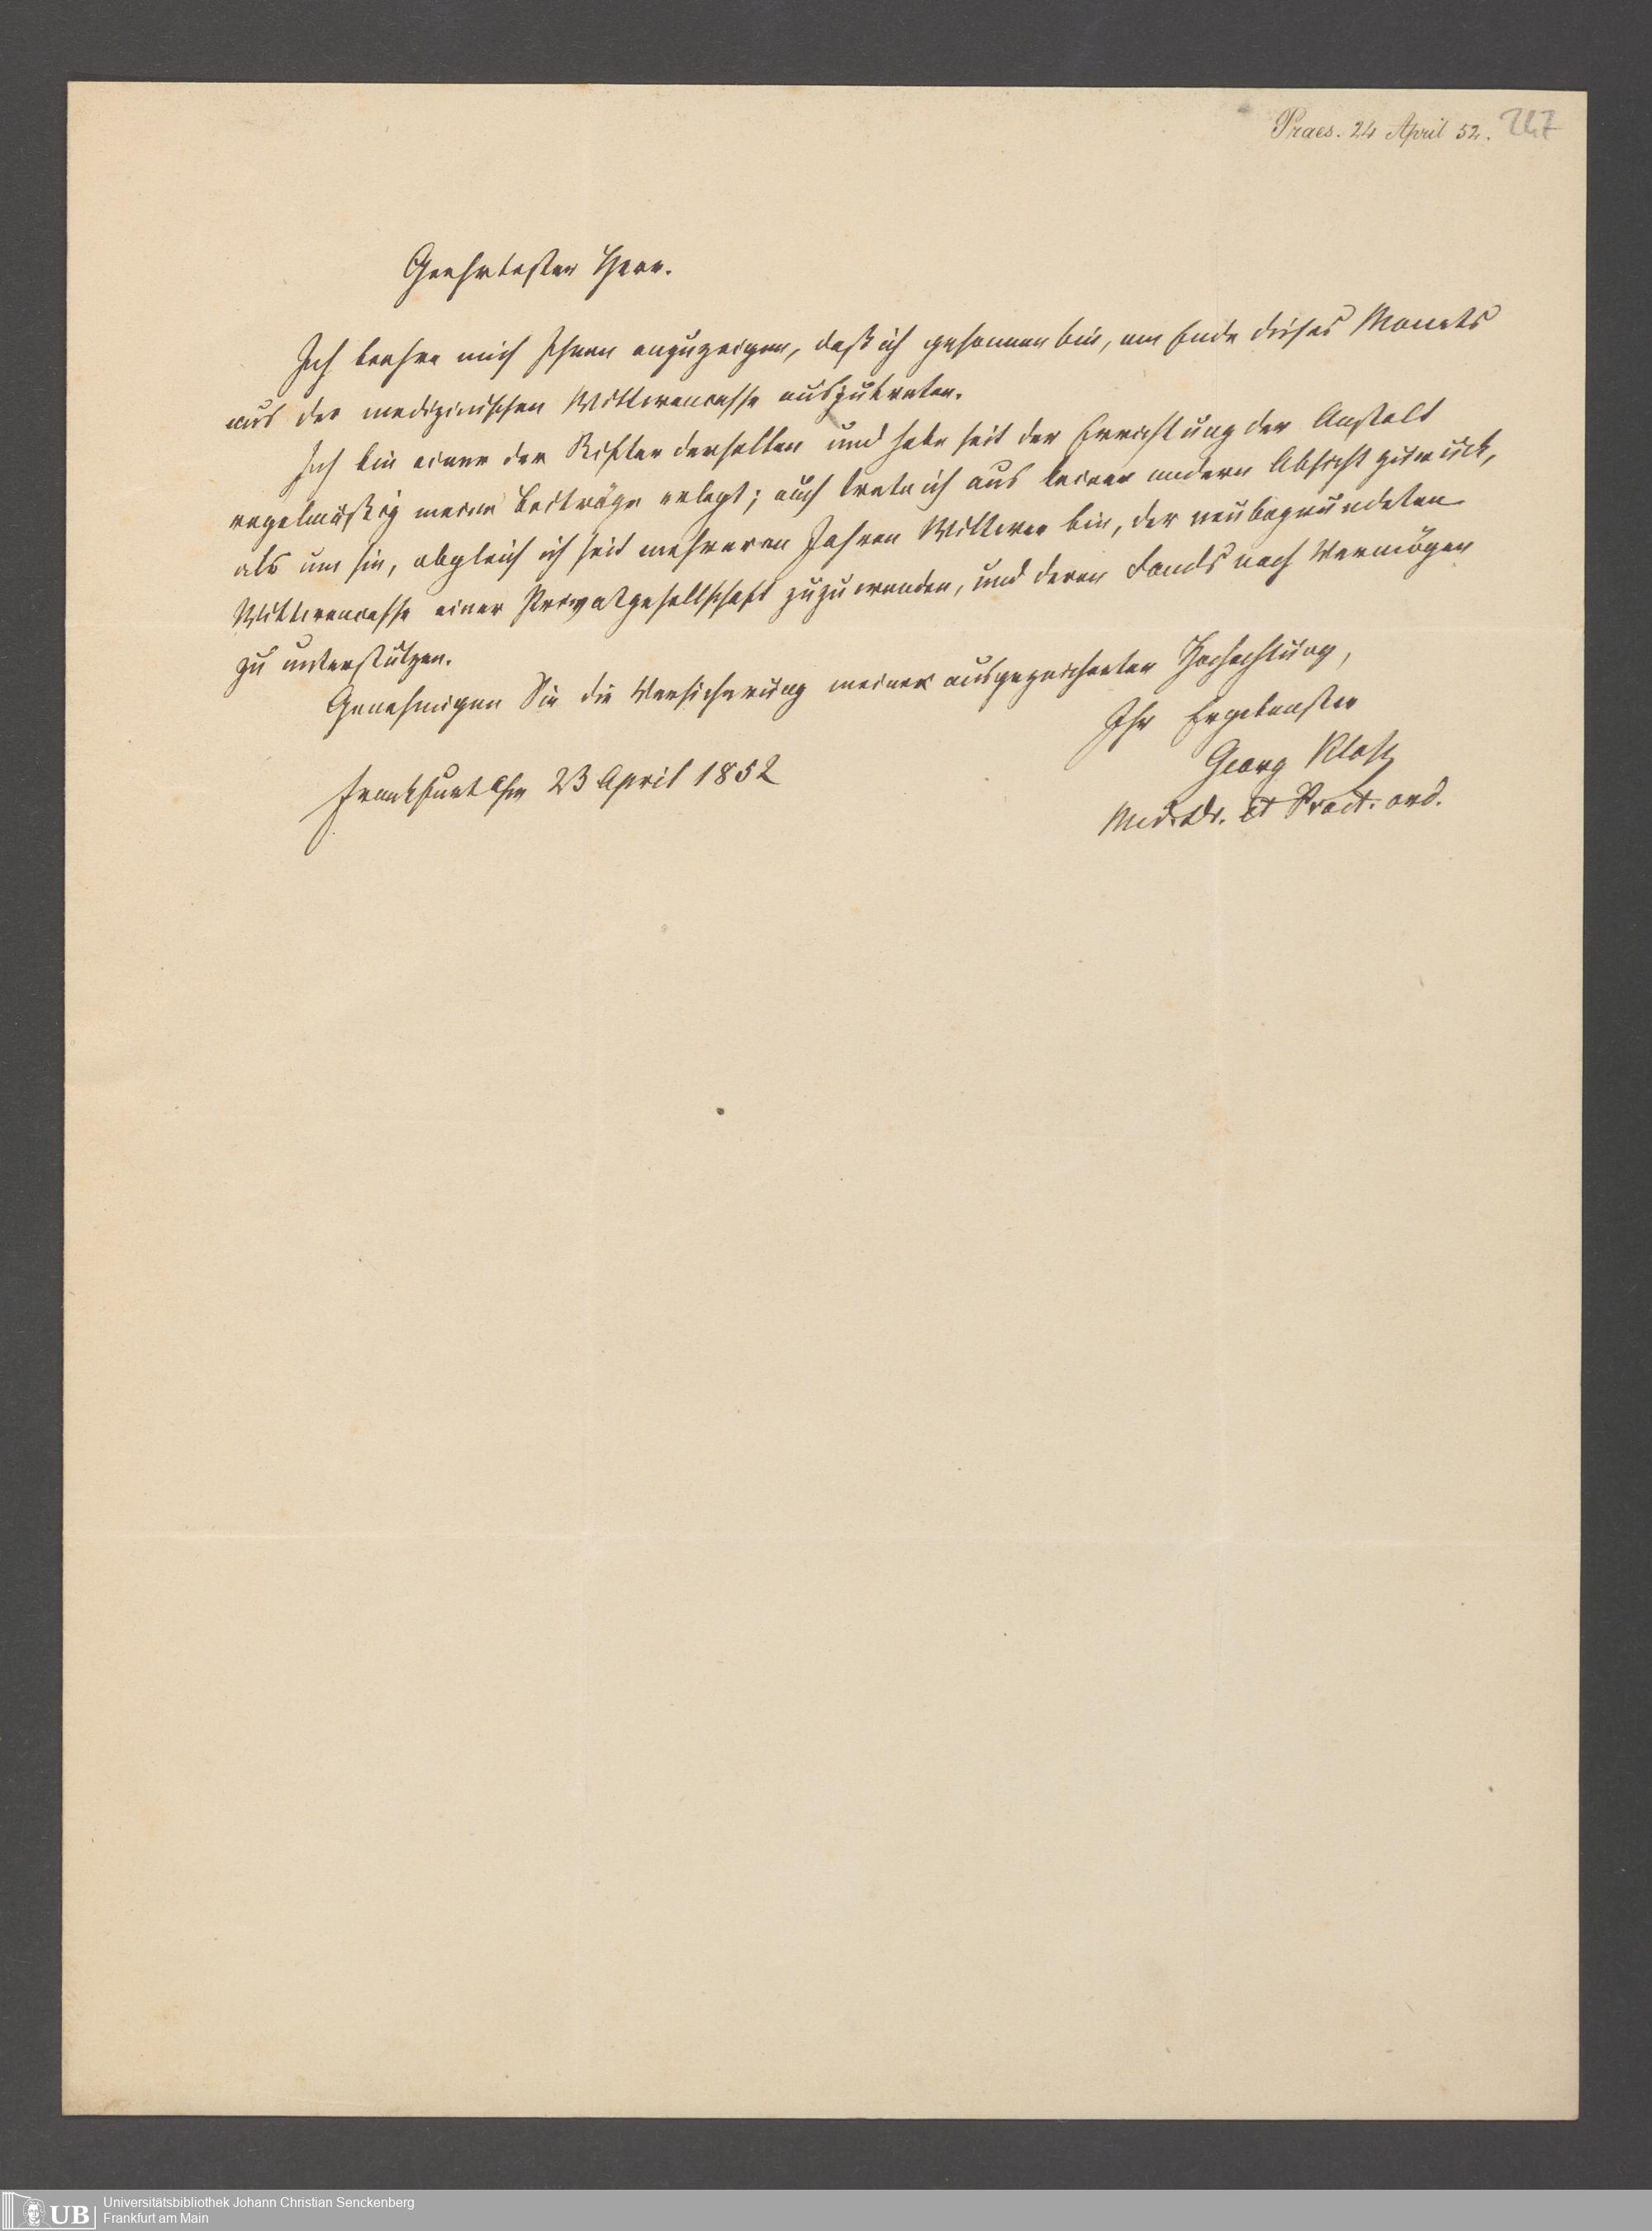 Praes. 24 April 52. 247
Geehrtester Herr.
Ich beehre mich Ihnen anzuzeigen, daß ich gesonnen bin, am Ende dieses Monats
aus der medizinischen Wittwencasse auszutreten.
Ich bin einer der Stifter derselben und habe seit der Errichtung der Anstalt
regelmäßig meine Beiträge erlegt; auch trete ich aus keiner andern Absicht zurück,
als um sie, obgleich ich seit mehreren Jahren Wittwer bin, der neubegründeten
Wittwencasse einer Privatgesellschaft zuzuwenden, und deren Fonds nach Vermögen
zu unterstützen.
Genehmigen Sie die Versicherung meiner ausgezeichneten Hochachtung,
Ihr Ergebenster
Georg Kloß
Med. Dr. et Pract. ord.
Frankfurt a/m 23 April 1852
UB Universitätsbibliothek Johann Christian Senckenberg
Frankfurt am Main